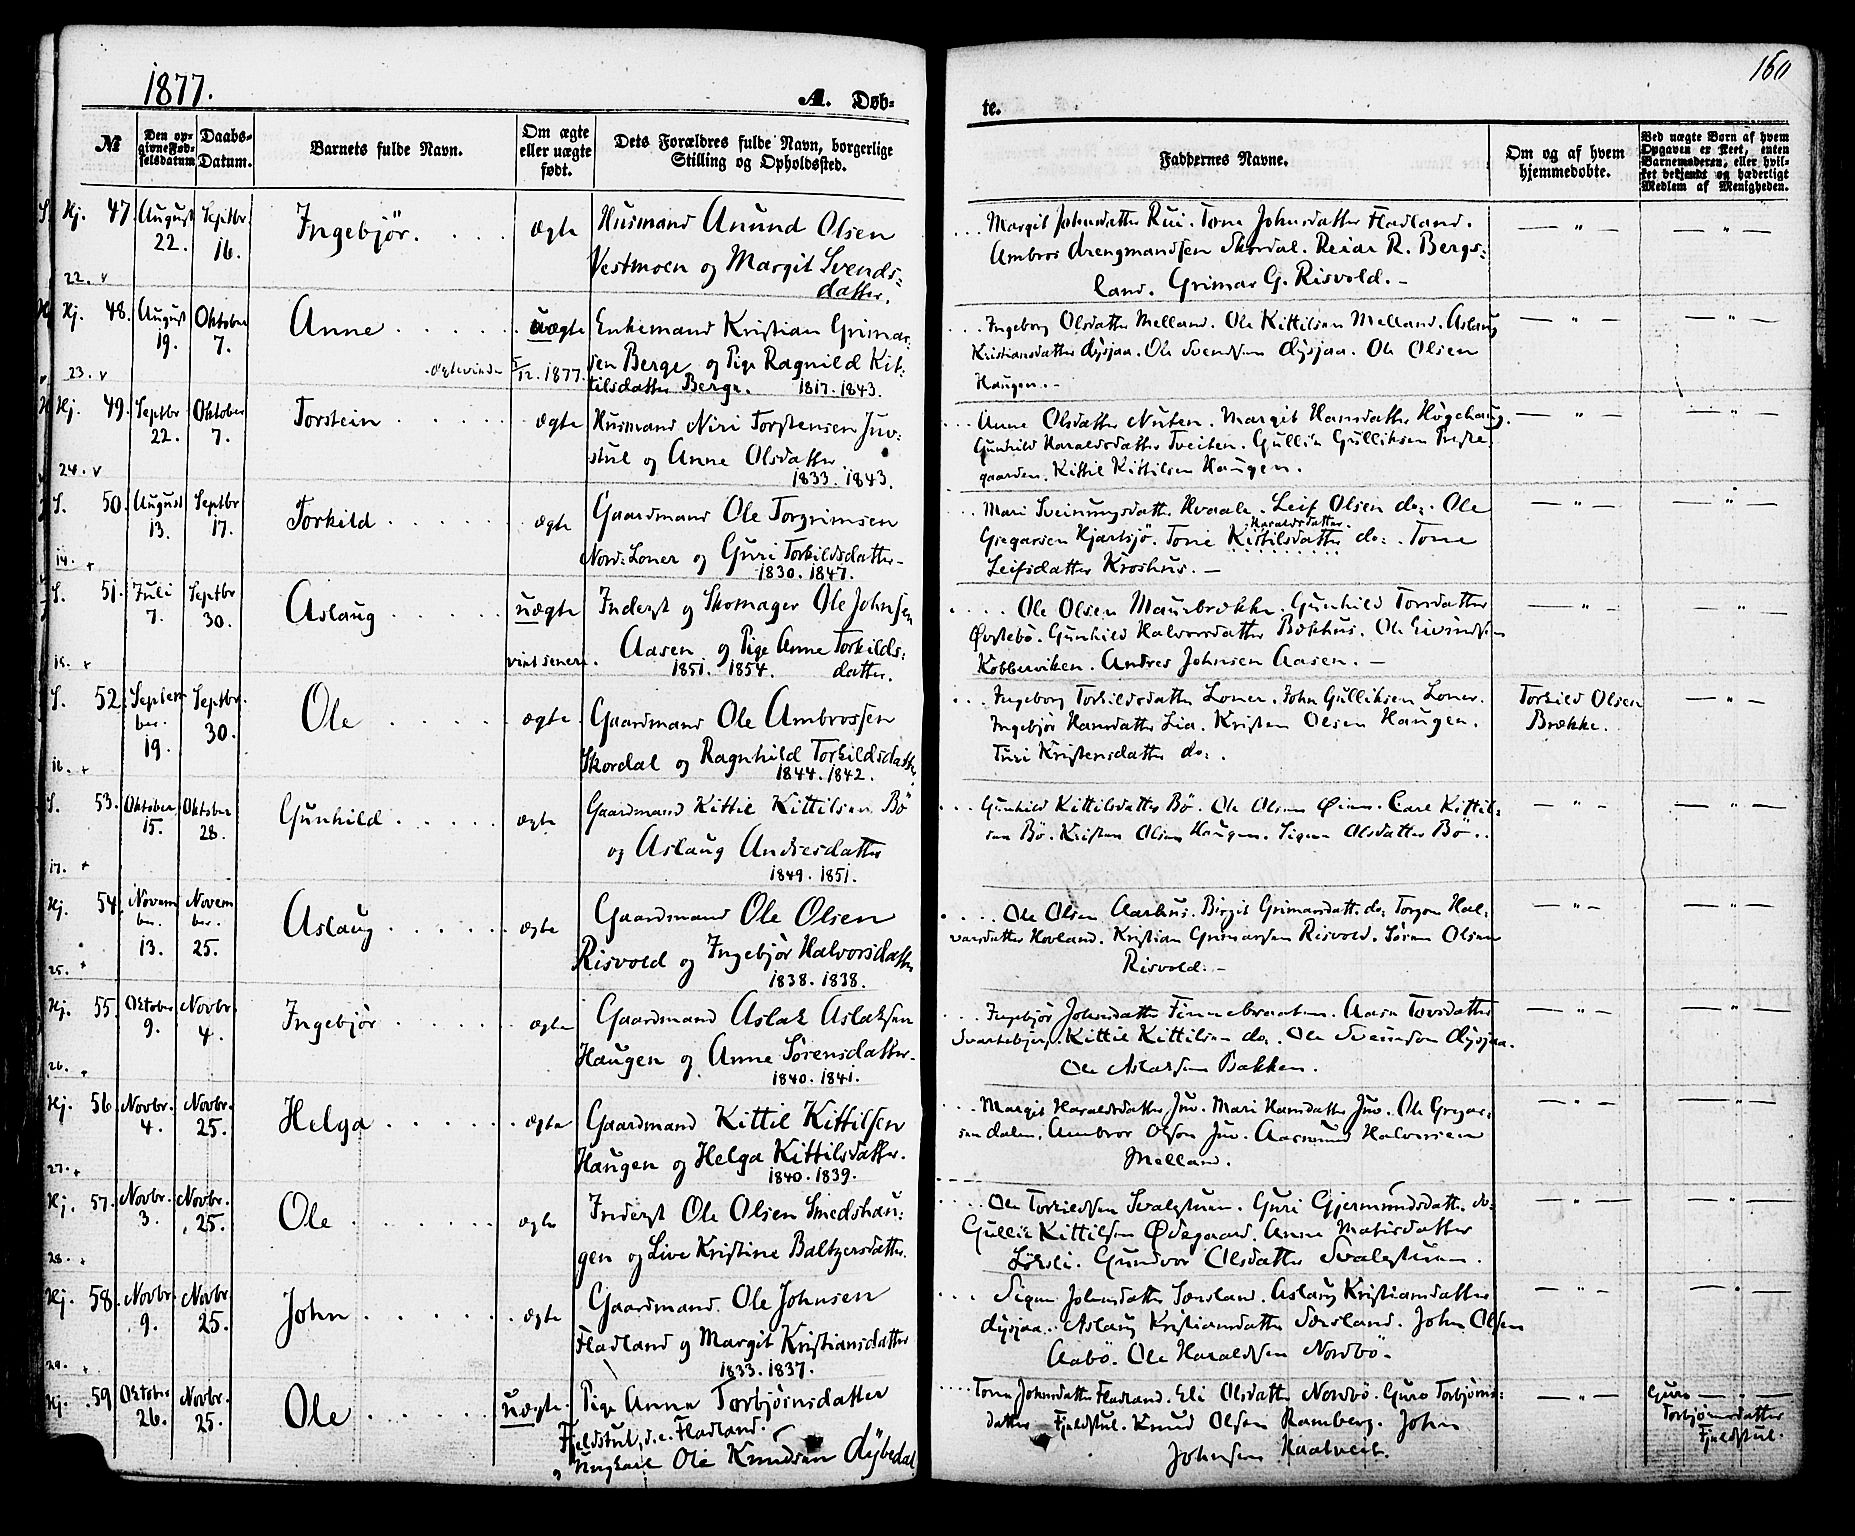 1877.
A. Døb-
te.
160
№
Den op-
givne Fød-
selsdatum
Daabs-
Datum.
Barnets fulde Navn.
Om ægte
eller uægte
født.
Dets Forældres fulde Navn, borgerlige
Stilling og Opholdssted.
Faddernes Navne.
Om og af hvem
hjemmedøbte.
Ved uægte Børn af hvem
Opgaven er skeet, enten
Barnemoderen, eller hvil-
ket bekjendt og hæderligt
Medlem af Menigheden.
Hj. 47. August 22. Septbr. 16. Ingebjör. ægte Husmand Anund Olsen
Vestmoen og Margit Svends-
datter.
22. v
Margit Johnsdatter Rui. Tone Johnsdatter Fladland.
Ambros Drengmandsen Skordal. Reiar R. Bergs-
land. Grimar G. Risvold. —
Hj. 48. August 19. Oktober 7. Anne uægte Enkemand Kristian Grimar-
sen Berge og Pige Ragnild Kit-
tilsdatter Berge. 1817. 1843.
23. v
12. 1877.
Ingeborg Olsdatter Melland. Ole Kittilsen Melland. Aslaug
Kristiansdatter Dysjaa. Ole Svendsen Dysjaa. Ole Olsen
Haugen. —
Hj. 49. Septbr 22. Oktober 7. Torstein ægte Husmand Niri Torstensen Juv-
stul og Anne Olsdatter
1833. 1843.
24. v
Anne Olsdatter Nuten. Margit Hansdatter Høgehaug.
Gunhild Haraldsdatter Tveiten. Gullik Gulliksen Preste-
gaarden. Kittil Kittilsen Haugen.
S. 50. August 13. Septbr 17. Torkild ægte Gaardmand Ole Torgrimsen
Nord: Loner og Guri Torkildsdatter —
1830. 1847.
14. +
Mari Sveinungsdatt. Hvaale. Leif Olsen do. Ole
Gregarsen Hjartsjö. Tone Kittilsdatter do. Tone
Haraldsdatter.
Leifsdatter Kroshus. —
S. 51. Juli 7. Septbr 30. Aslaug uægte Inderst og Skomager Ole Johnsen
Aasen og Pige Anne Torkilds-
1851. 1854. datter.
15. +
viet senere.
Ole Olsen Maurbrække. Gunhild Torsdatter
Øvstebö. Gunhild Halvorsdatter Bækhus. Ole Eivindsen
Kobberviken. Andres Johnsen Aasen. —
S. 52. Septem-
ber. 19. Septbr. 30. Ole ægte Gaardmand Ole Ambrossen
Skordal og Ragnhild Torkildsdatter
1844. 1842.
16. +
Ingeborg Torkildsdatter Loner. John Gulliksen Loner.
Ingebjör Hansdatter Lia. Kristen Olsen Haugen.
Turi Kristensdatter do.
Torkild Olsen
Brække.
S. 53. Oktober 15. Oktober 28. Gunhild ægte Gaardmand Kittil Kittilsen Bö
og Aslaug Andresdatter
1849. 1851.
17. +
Gunhild Kittilsdatter Bö. Ole Olsen Øien. Carl Kittil-
sen Bö. Kristen Olsen Haugen. Signe Olsdatter Bö.
Hj. 54. Novem-
ber. 13. Novem
ber. 25. Aslaug ægte Gaardmand Ole Olsen
Risvold og Ingebjör Halvorsdatter
1838. 1838.
25. +
Ole Olsen Aarhus. Birgit Grimarsdatt. do. Torgon Hal-
varsdatter Hovland. Kristian Grimarsen Risvold. Søren Olsen
Risvold. —
Hj. 55. Oktober 9. Novbr. 4. Ingebjör ægte Gaardmand Aslak Aslaksen
Haugen og Anne Sørensdatter.
1840. 1841.
26. +
Ingebjör Johnsdatter Finnebraaten. Aase Torsdatter
Svartebjerg. Kittil Kittilsen do. Ole Svendsen Dysjaa.
Ole Aslaksen Bakken.
Hj. 56. Novbr. 4. Novbr. 25. Helga ægte Gaardmand Kittil Kittilsen
Haugen og Helga Kittilsdatter.
1840. 1839.
27. +
Margit Haraldsdatter Juv. Mari Hansdatter Juv. Ole Gregar-
sen Dalen. Ambror Olsen Juv. Aasmund Halvorsen
Melland.
Hj. 57. Novbr. 3. Novbr. 25. Ole ægte Inderst Ole Olsen Smedshau-
gen og Live Kristine Baltzersdatter.
28. +
Ole Torkildsen Svalestuen. Guri Gjermundsdatt. do.
Gullik Kittilsen Ødegaard. Anne Matisdatter
Löksli. Gundvor Olsdatter Svalestuen.
Hj. 58. Novbr. 9. Novbr. 25. John ægte Gaardmand Ole Johnsen
Fladland og Margit Kristiansdatter
1833. 1837.
29. +
Signe Johnsdatter Særsland. Aslaug Kristiansdatter
Dysjaa. Aslaug Kristiansdatter Særsland. John Olsen
Aabö. Ole Haraldsen Nordbö.
Hj. 59 Oktober 26. Novbr. 25. Ole uægte. Pige Anne Torbjørnsdatter
Fjeldstul, d.e. Fladland.
Ungkarl Ole Knudsen Dybedal
Tone Johnsdatter Fladland. Eli Olsdatter Nordbö. Guro Torbjørns-
datter Fjeldstul. Knud Olsen Ramberg. John
Johnsen Haatveit.
Guro
Torbjørnsdatter
Fjeldstul.